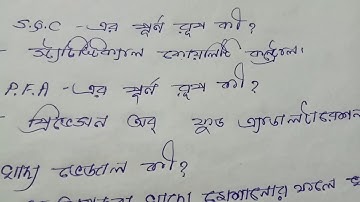 S.Q.C - এর পূর্ণ রূপ কী?
- স্ট্যাটিস্টিক্যাল কোয়ালিটি কন্ট্রোল।
P.F.A - এর পূর্ণ রূপ কী?
- প্রিভেনশন অব্ ফুড এ্যাডালটারেশন
খাদ্য ভেজাল কী?
খাদ্যে মেশানোর ফলে